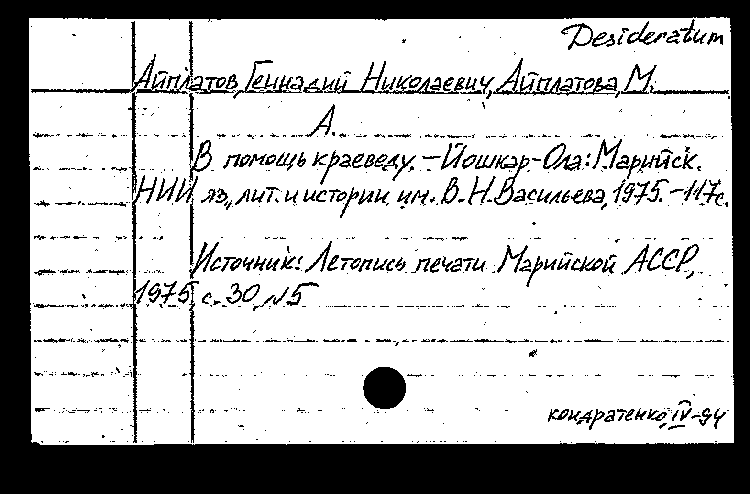 Desideratum
Айплатов, Геннадий Николаевич, Айплатова, М.
А.
В помощь краеведу. – Йошкар-Ола: Марийск.
НИИ яз., лит. и истории им. В.Н. Васильева, 1975. – 117с.
Источник: Летопись печати Марийской АССР,
1975, с. 30, №5
кондратенко, IV-94